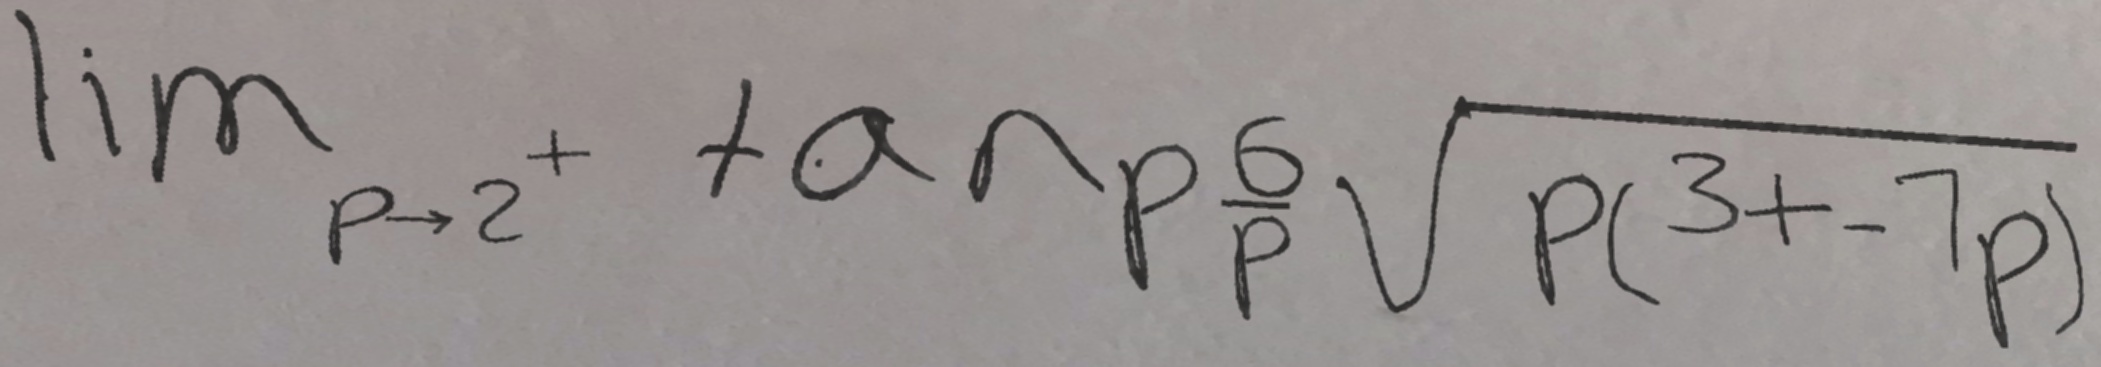 \lim_{p \to 2^+} \tan p \frac{6}{p} \sqrt{p(3+-7p)}